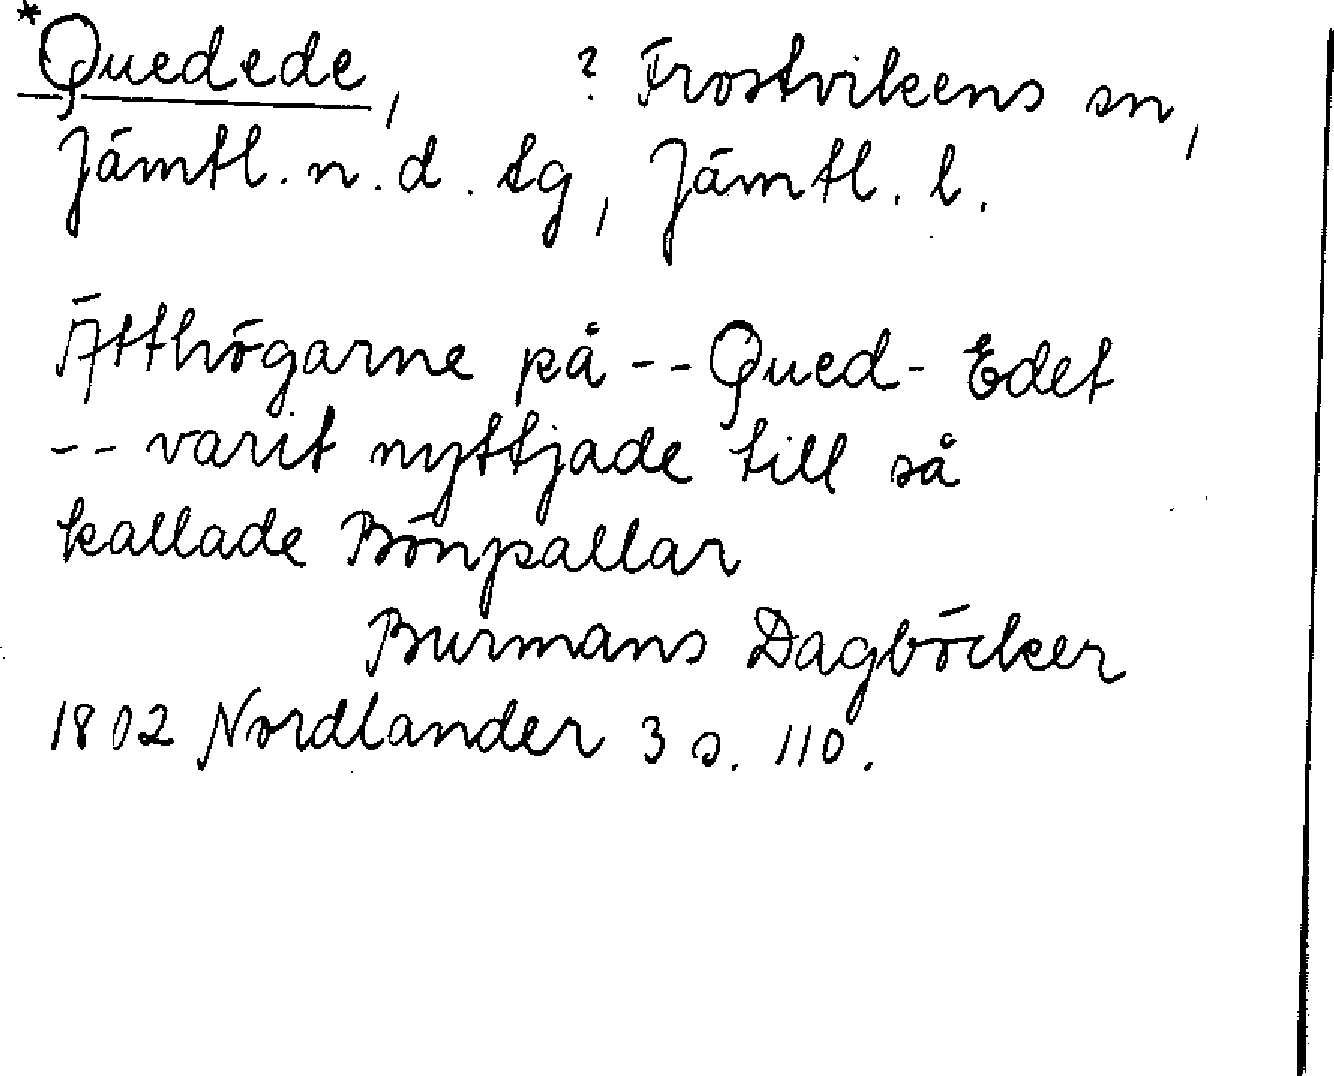 *Quedede, ? Frostvikens sn,
Jämtl. n. d. tg, Jämtl. l.
Ätthögarne på -- Qued- Edet
-- varit nyttjade till så
kallade Bönpallar
Burmans Dagböcker
1802 Nordlander 3 s. 110.